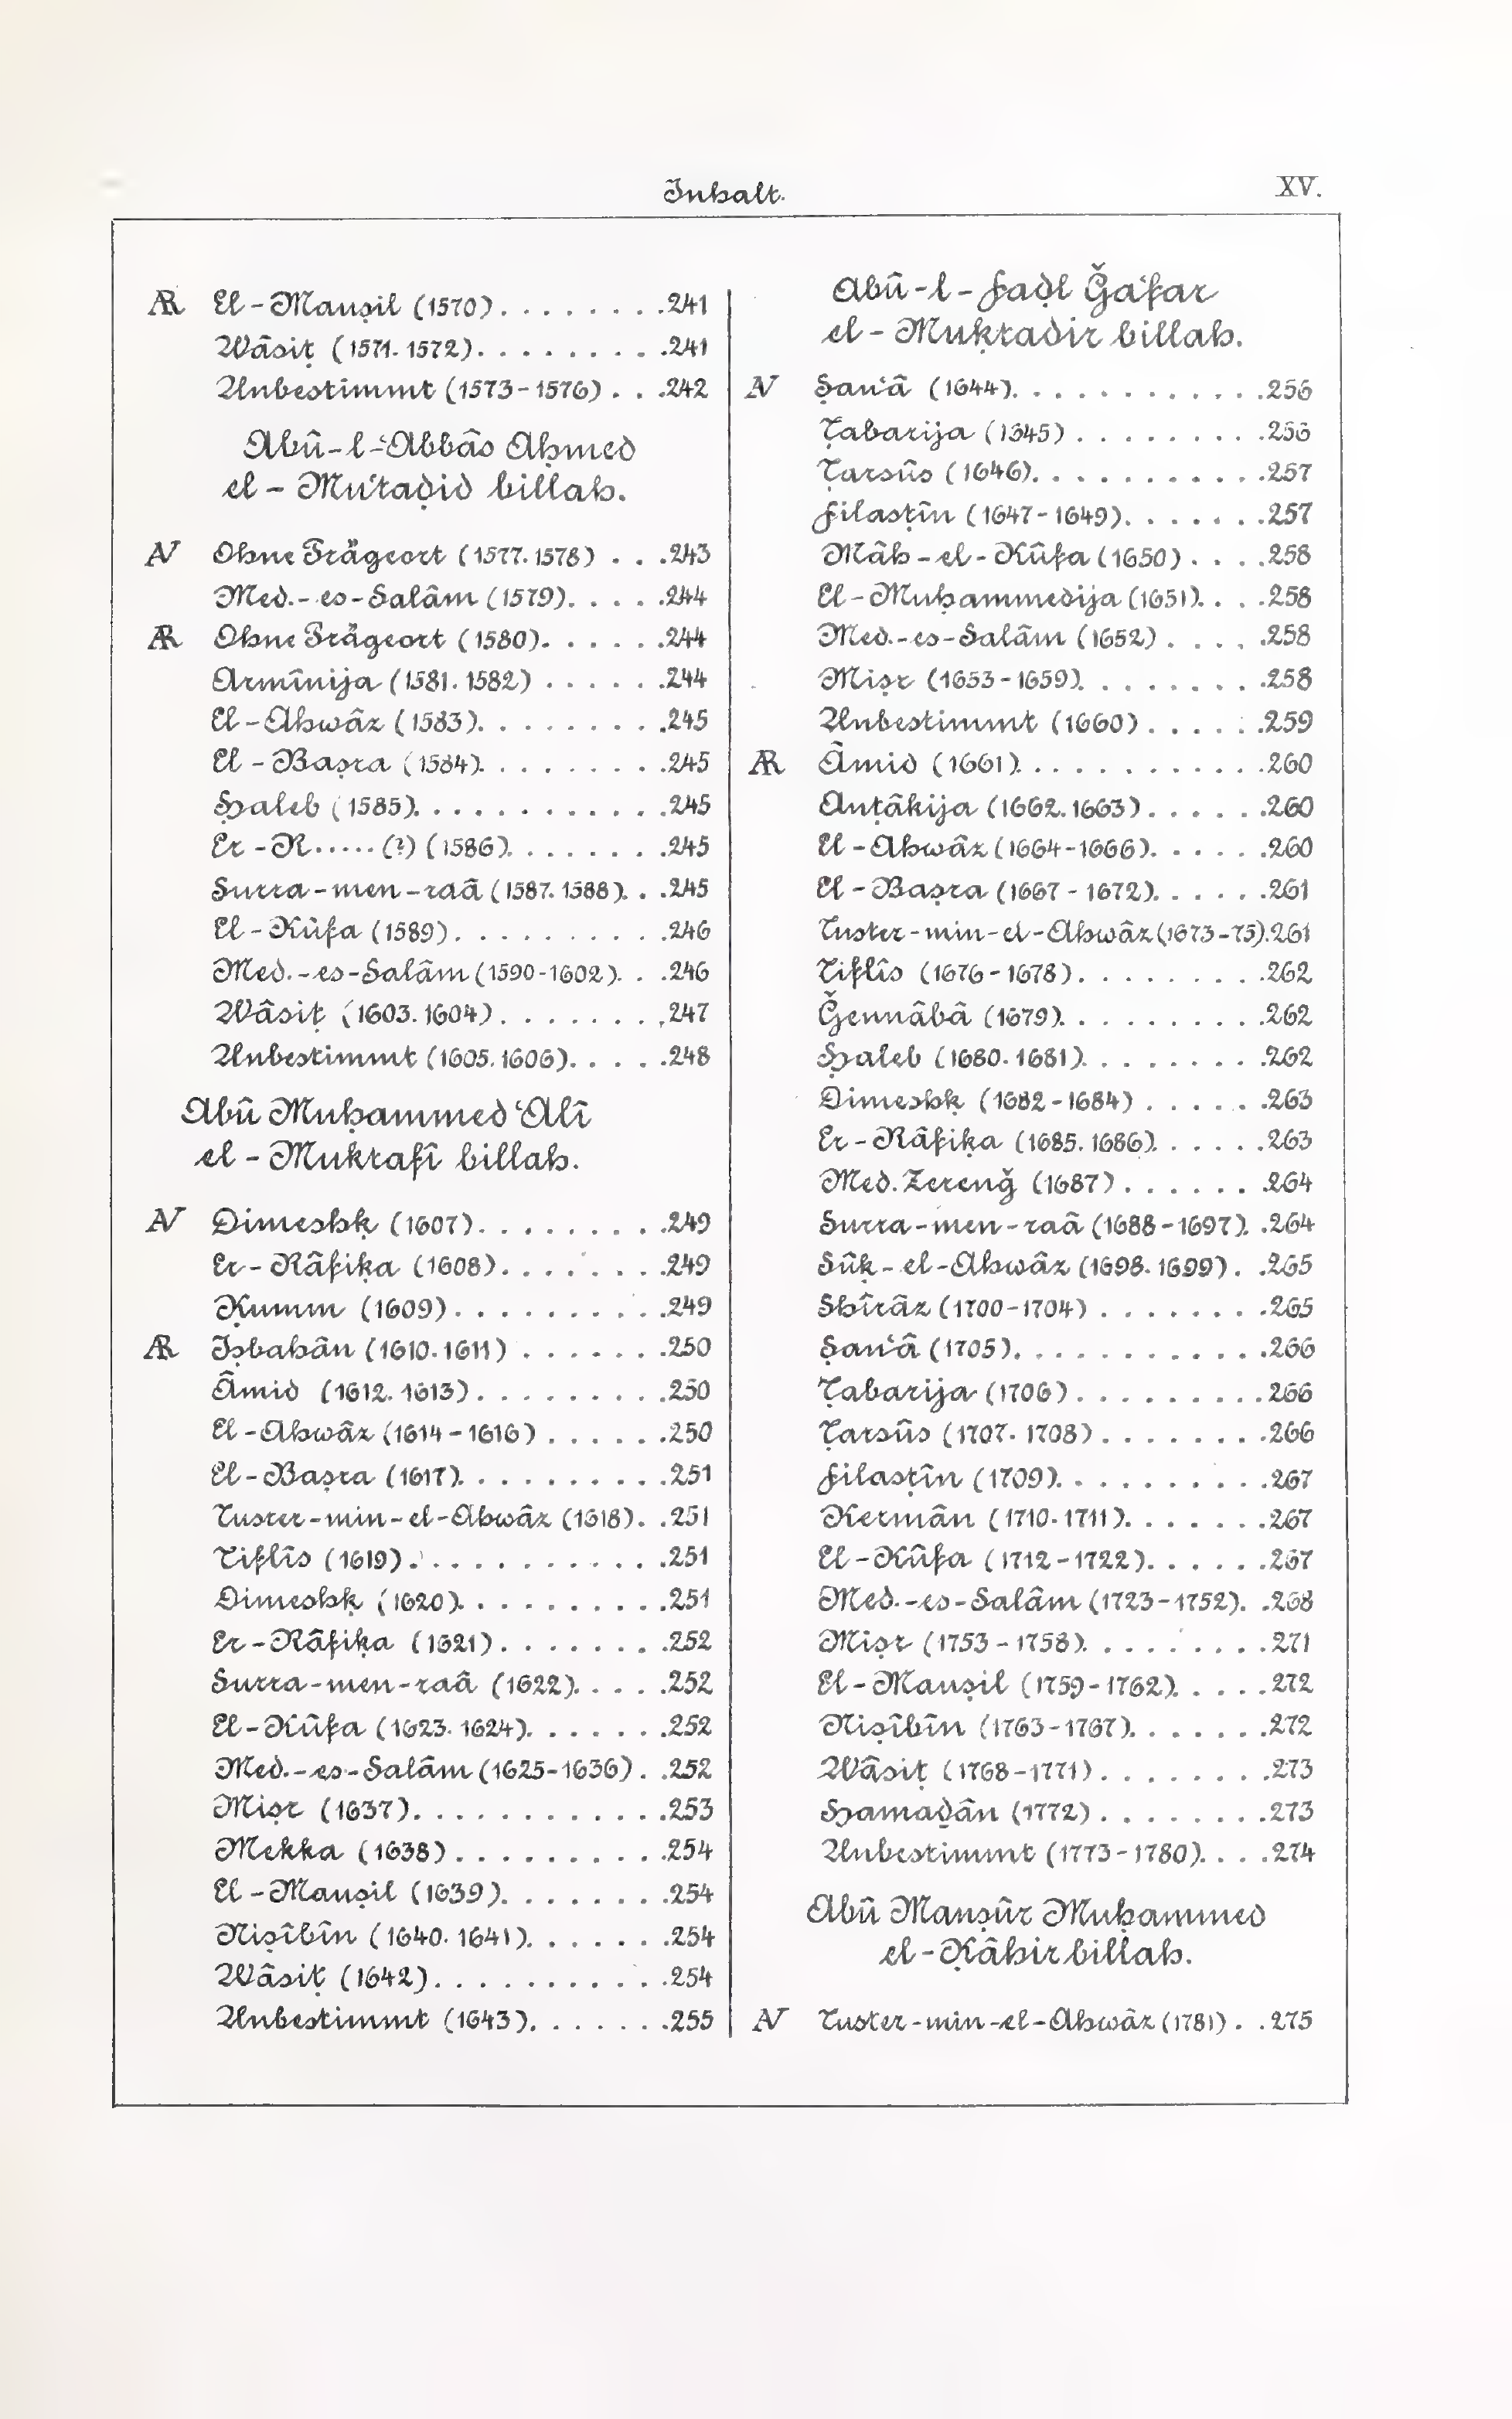 Inhalt.
XV.
AR El-Mauṣil (1570). . . . . . . . .241
Wâsiṭ (1571. 1572). . . . . . . . .241
Unbestimmt (1573-1576) . . .242
Abû-l-ʿAbbâs Aḥmed
el-Muʿtaḍid billah.
AV Ohne Prägeort (1577. 1578) . . .243
Med.-es-Salâm (1579). . . . .244
AR Ohne Prägeort (1580). . . . . .244
Armînija (1581. 1582) . . . . . .244
El-Ahwâz (1583). . . . . . . . .245
El-Baṣra (1584). . . . . . . . .245
Ḥaleb (1585). . . . . . . . . . . .245
Er-R..... (?) (1586). . . . . . . .245
Surra-men-raâ (1587. 1588). . .245
El-Kûfa (1589). . . . . . . . . .246
Med.-es-Salâm (1590-1602). . .246
Wâsiṭ (1603. 1604). . . . . . . .247
Unbestimmt (1605. 1606). . . . .248
Abû Muḥammed ʿAlî
el-Muktafî billah.
AV Dimeshḳ (1607). . . . . . . . .249
Er-Râfiḳa (1608). . . . . . . .249
Ḳumm (1609). . . . . . . . . .249
AR Iṣbahân (1610. 1611) . . . . . . .250
Âmid (1612. 1613). . . . . . . . .250
El-Ahwâz (1614-1616) . . . . . .250
El-Baṣra (1617). . . . . . . . . .251
Tuster-min-el-Ahwâz (1618). .251
Tiflîs (1619). . . . . . . . . . . .251
Dimeshḳ (1620). . . . . . . . . .251
Er-Râfiḳa (1621). . . . . . . .252
Surra-men-raâ (1622). . . . .252
El-Kûfa (1623. 1624). . . . . . .252
Med.-es-Salâm (1625-1636). .252
Miṣr (1637). . . . . . . . . . . .253
Mekka (1638). . . . . . . . . .254
El-Mauṣil (1639). . . . . . . .254
Niṣîbîn (1640. 1641). . . . . . .254
Wâsiṭ (1642). . . . . . . . . . .254
Unbestimmt (1643). . . . . . .255
Abû-l-Faḍl Ǧaʿfar
el-Muḳtadir billah.
AV Ṣanʿâ (1644). . . . . . . . . . . .256
Ṭabarija (1645) . . . . . . . . .256
Ṭarsûs (1646). . . . . . . . . . .257
Filasṭîn (1647-1649). . . . . . .257
Mâh-el-Kûfa (1650). . . .258
El-Muḥammedija (1651). . . .258
Med.-es-Salâm (1652) . . . .258
Miṣr (1653-1659). . . . . . . .258
Unbestimmt (1660) . . . . . .259
AR Âmid (1661). . . . . . . . . . .260
Anṭâkija (1662. 1663) . . . . . .260
El-Ahwâz (1664-1666). . . . . .260
El-Baṣra (1667-1672). . . . . .261
Tuster-min-el-Ahwâz (1673-75).261
Tiflîs (1676-1678). . . . . . . . .262
Ǧennâbâ (1679). . . . . . . . .262
Ḥaleb (1680. 1681). . . . . . . .262
Dimeshḳ (1682-1684) . . . . . .263
Er-Râfiḳa (1685. 1686). . . . . .263
Med. Zerenǧ (1687) . . . . . . .264
Surra-men-raâ (1688-1697). .264
Sûḳ-el-Ahwâz (1698. 1699). .265
Shîrâz (1700-1704) . . . . . . . .265
Ṣanʿâ (1705). . . . . . . . . . . .266
Ṭabarija (1706). . . . . . . . . .266
Ṭarsûs (1707. 1708). . . . . . . .266
Filasṭîn (1709). . . . . . . . . .267
Kermân (1710. 1711). . . . . . .267
El-Kûfa (1712-1722). . . . . .267
Med.-es-Salâm (1723-1752). .268
Miṣr (1753-1758). . . . . . . . .271
El-Mauṣil (1759-1762). . . . .272
Niṣîbîn (1763-1767). . . . . . .272
Wâsiṭ (1768-1771). . . . . . . .273
Hamaḏân (1772) . . . . . . . .273
Unbestimmt (1773-1780). . . .274
Abû Manṣûr Muḥammed
el-Ḳâhir billah.
AV Tuster-min-el-Ahwâz (1781). .275